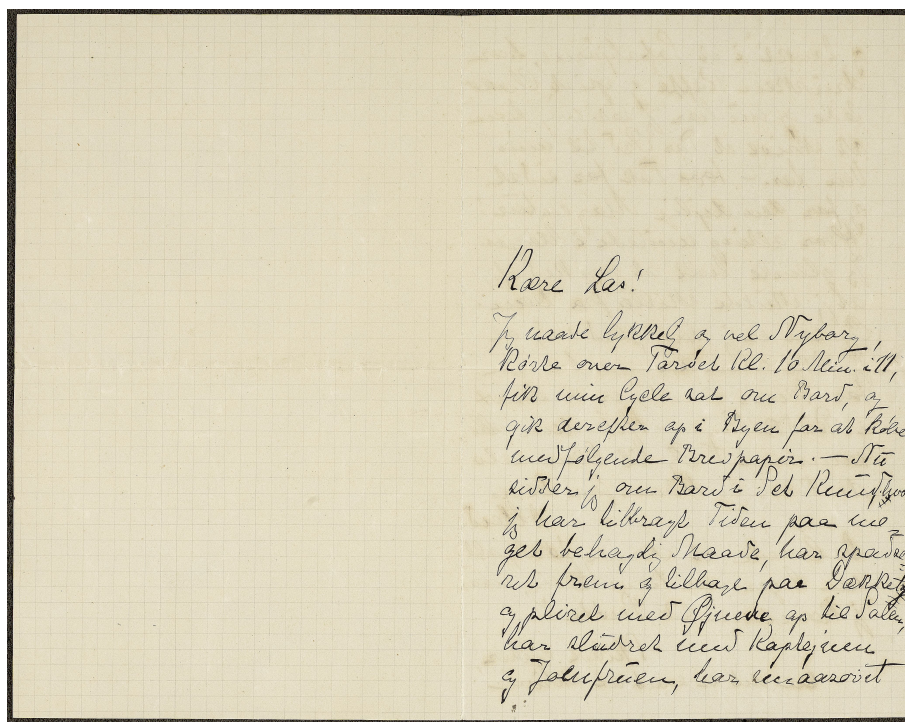 Kære Las!
Jeg naade lykkelig og vel Nyborg,
kørte over Tarvet Kl. 10 Min. i 11,
fik min Cycle sat om Bord, og
gik derefter op i Byen for at købe
medfølgende Brevpapir. — Nu
sidder jeg om Bord i Sct Knud, hvor
jeg har tilbragt Tiden paa me-
get behagelig Maade, har spadse-
ret frem og tilbage paa Dækket
og pliret med Øjnene op til Solen,
har sludret med Kaptejnen
og Jomfruen, har smaasovet